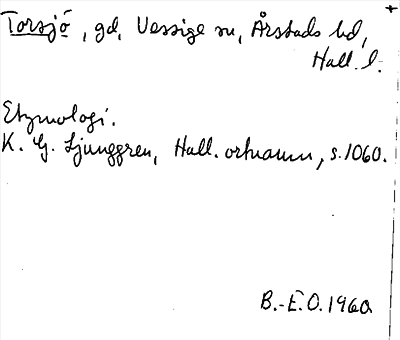 Torsjö, gd, Vessige sn, Årstads hd,
Hall. l.
Etymologi.
K. G. Ljunggren, Hall. ortnamn, s. 1060.
B.-E.O. 1960